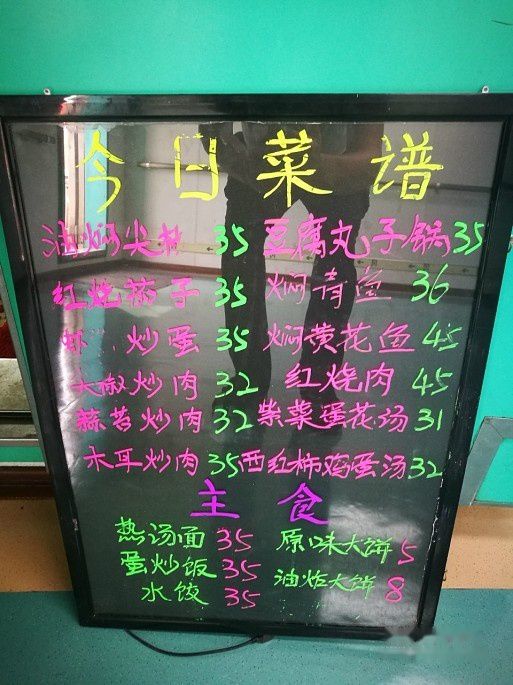 今日菜谱
油焖尖椒 35 豆腐丸子锅 35
红烧茄子 35 焖青鱼 36
虾 炒蛋 35 焖黄花鱼 45
大椒炒肉 32 红烧肉 45
蒜苔炒肉 32 紫菜蛋花汤 31
木耳炒肉 35 西红柿鸡蛋汤 32
主食
热汤面 35 原味大饼 5
蛋炒饭 35 油炸大饼 8
水饺 35